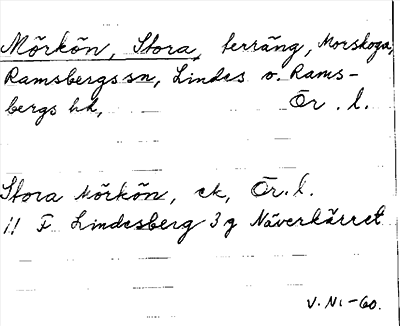 Mörkön, Stora, terräng, Morskoga,
Ramsbergs sn, Lindes o. Rams-
bergs hd, Ör. l.
Stora Mörkön, ek, Ör. l.
11 F Lindesberg 3 g Näverkärret
V. Ni -60.